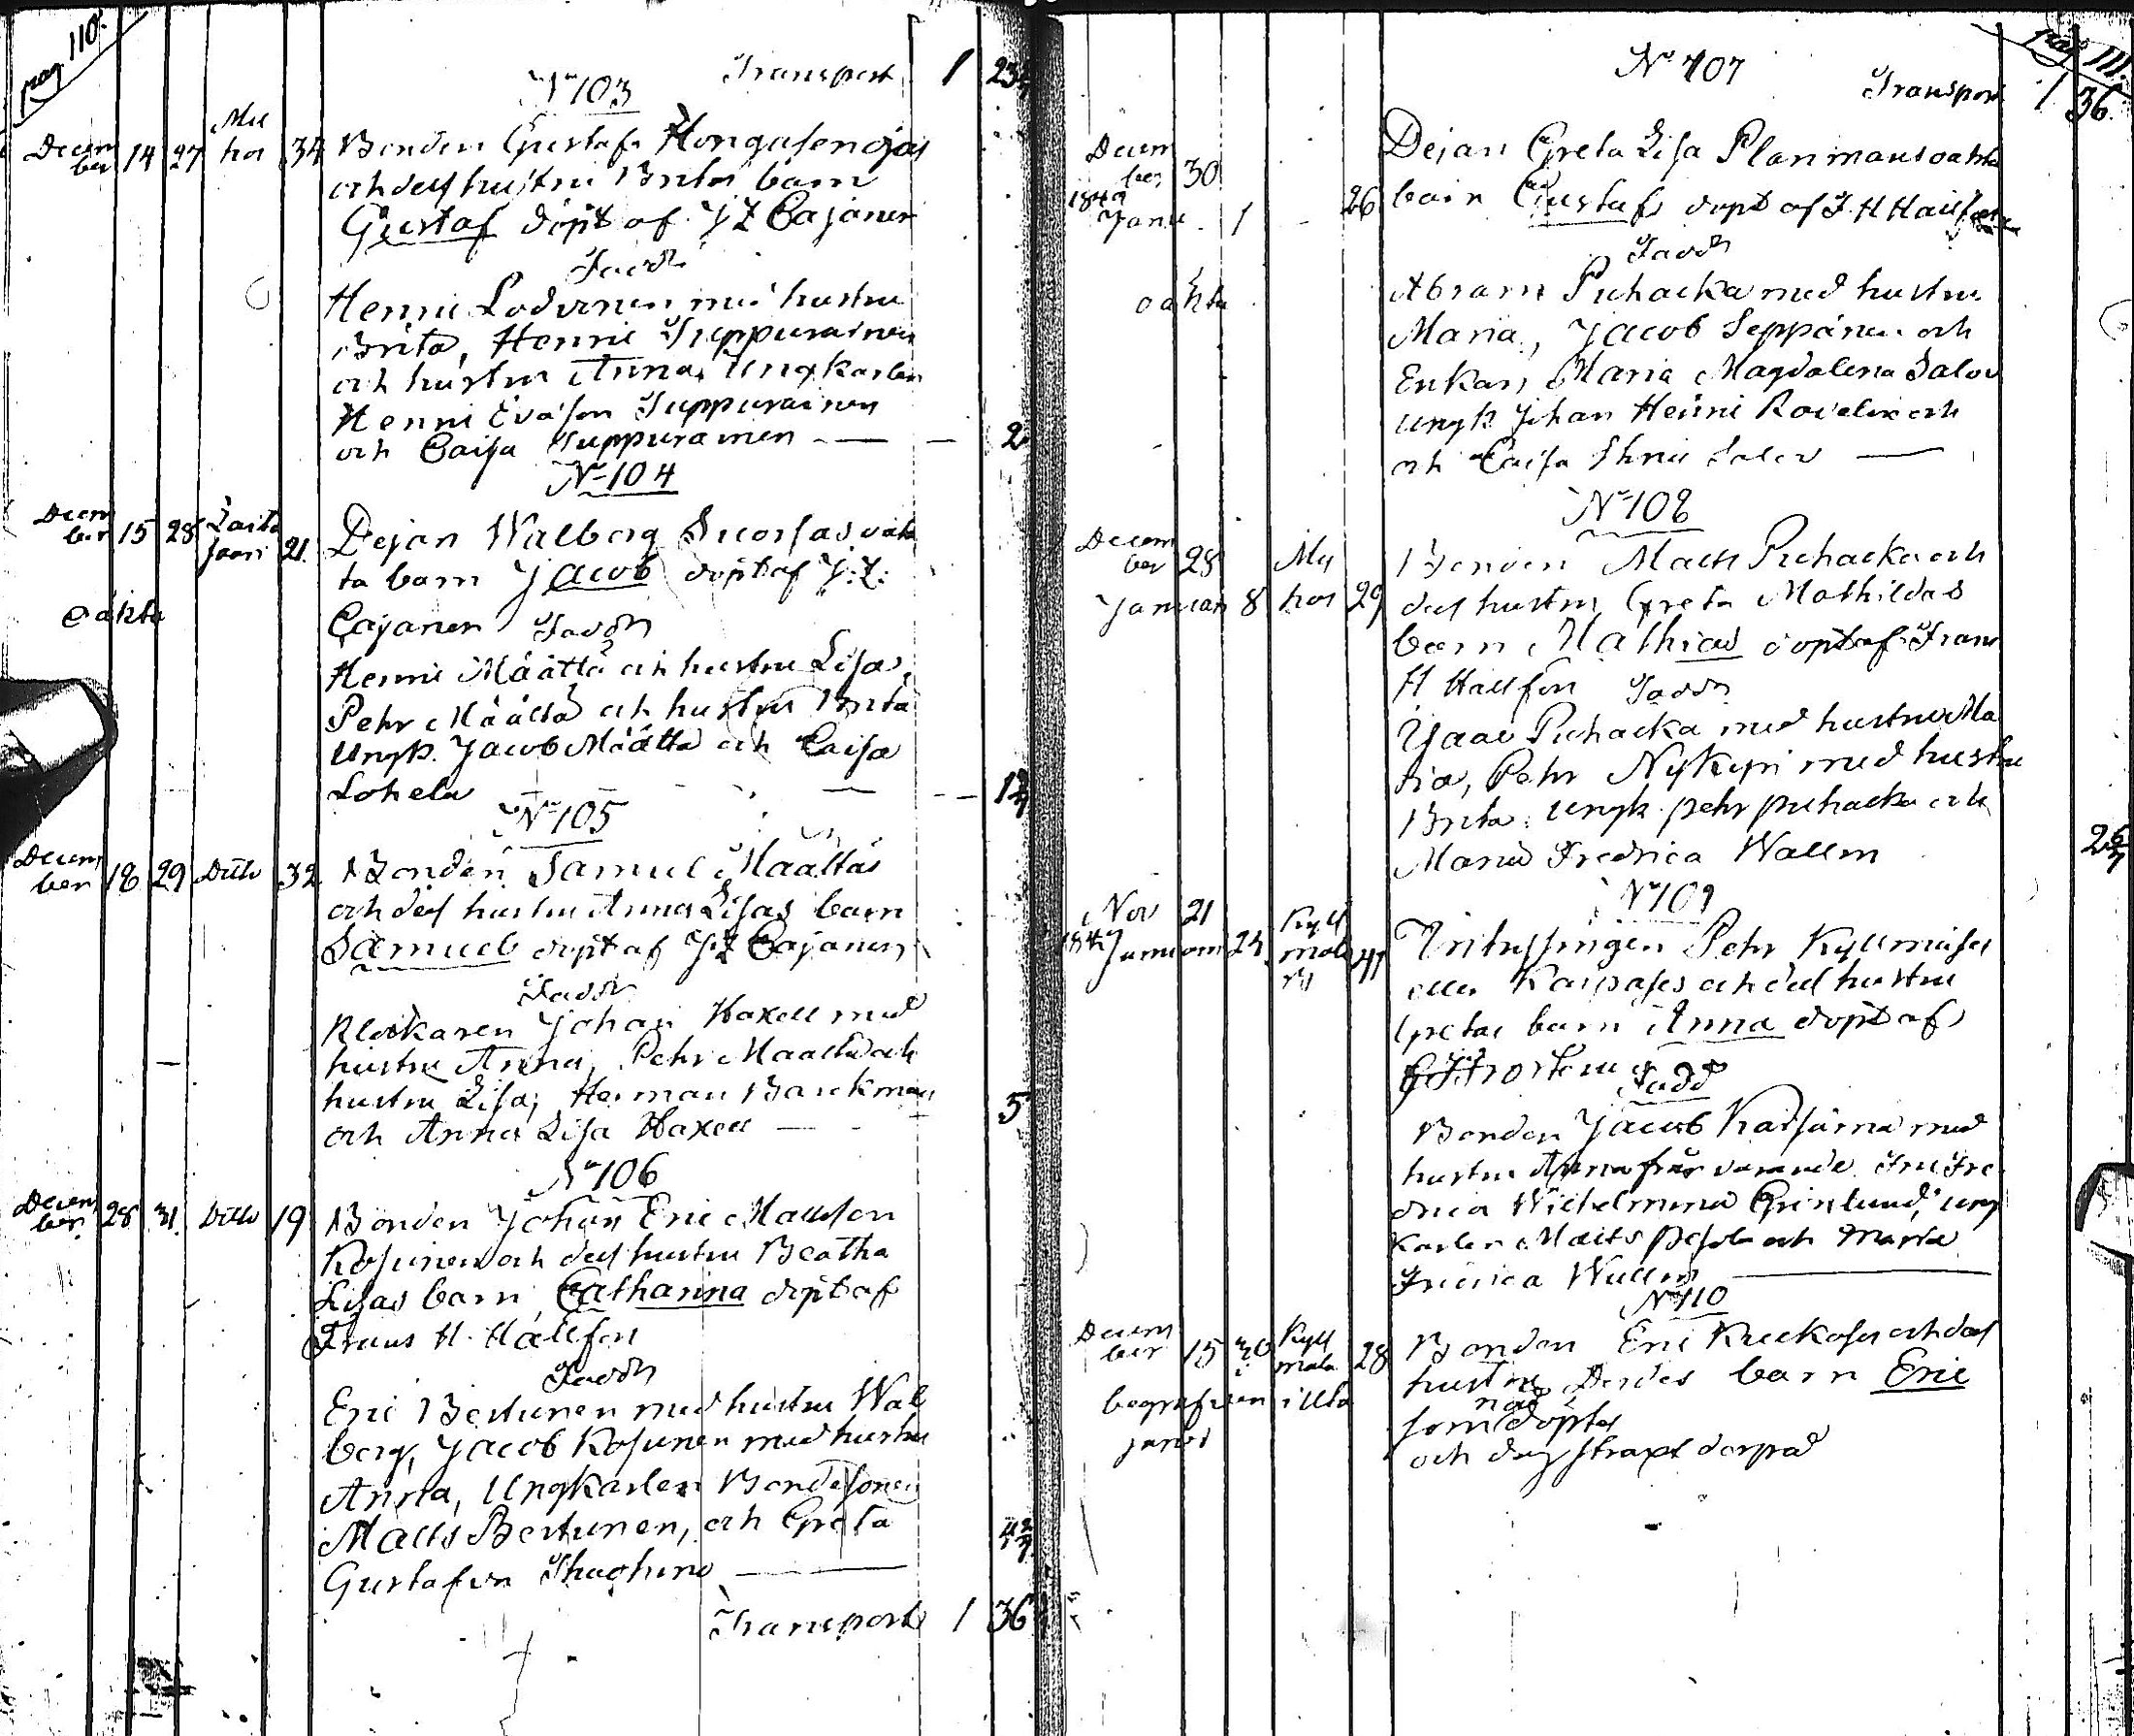 pag. 110.
Transport 1 23
N 103
Decem
ber 14 27 Mu
hos 34 Bonden Gustaf Hongasenojas
och dess hustru Britas barn
Gustaf döpt af J Z Cajanen
Fadd
Henric Lodvinen med hustru
Brita, Henric Seppurainen
och hustru Anna, Ungkarlen
Henric Evason Suppurainen
och Caisa Suppurainen — — 2
N 104
Decem
ber 15 28 Laita
saari 21 Dejan Walborg Suorsas oäk
ta barn Jacob döpt af J: Z:
oäkta
Cajanen Fadd
Henric Määttä och hustru Lisa,
Pehr Määttä och hustru Brita
Ungk. Jacob Määttä och Caisa
Lohela — —
N 105
Decem
ber 18 29 Ditto 32 Bonden Samuel Määttäs
och dess hustru Anna Lisas barn
Samuel döpt af J Z Cajanen
Fadd
Klockaren Johan Haxell med
hustru Anna, Pehr Määttä och
hustru Lisa, Herman Barckman
och Anna Lisa Haxell — 5
N 106
Decem
ber 28 31. Ditto 19 Bonden Johan Eric Mattsson
Kosunen och dess hustru Beatha
Lisas barn Catharina döpt af
Frans H. Hällfors
Fadd
Eric Bertunen med hustru Wal
borg, Jacob Kosunen med hustru
Anna, Ungkarlen Bondesonen
Matts Bertunen, och Greta
Gustafva
Transport 1 36
pag 111.
N 107
Transport 1 36.
Decem
ber 30
1849
Janu. 1 - 26 Dejan Greta Lisa Planmans oäkta
barn Gustaf döpt af F. H Hällfors
Fadd
oäkta
Abram Puhacka med hustru
Maria, Jacob Seppänen och
Enkan Maria Magdalena Salov
ungk Johan Henric Rovelin och
och Caisa Salov —
N 108
Decem
ber 28
Januari 8 Mu
hos 29 Bonden Matts Puhacka och
dess hustru Greta Mathildas
barn Mathias döpt af Frans
H Hällfors Fadd
Isaac Puhacka med hustru Ma
ria, Pehr Nykyri med hustru
Brita, ungk. pehr puhacka och
Maria Fredrica Wallin
N 109
Nov 21
Januari 24 Kyll
mäla
41 Inhysingen Pehr Kyllmäses
eller Karpases och dess hustru
Gretas barn Anna döpt af
Frosterus
Fadd
Bonden Jacob Karjaina med
hustru Anna frånvarande, Fru Fre
drica Wilhelmina Grönlund, ung
Karlen Matts och Maria
Fredrica Wallin —
N 110
Decem
ber 15 Kyll
mala 28 Bonden Eric Kuckoses och dess
hustru barn Eric
begrafven i
som nöd döptes
och dog straxt derpå